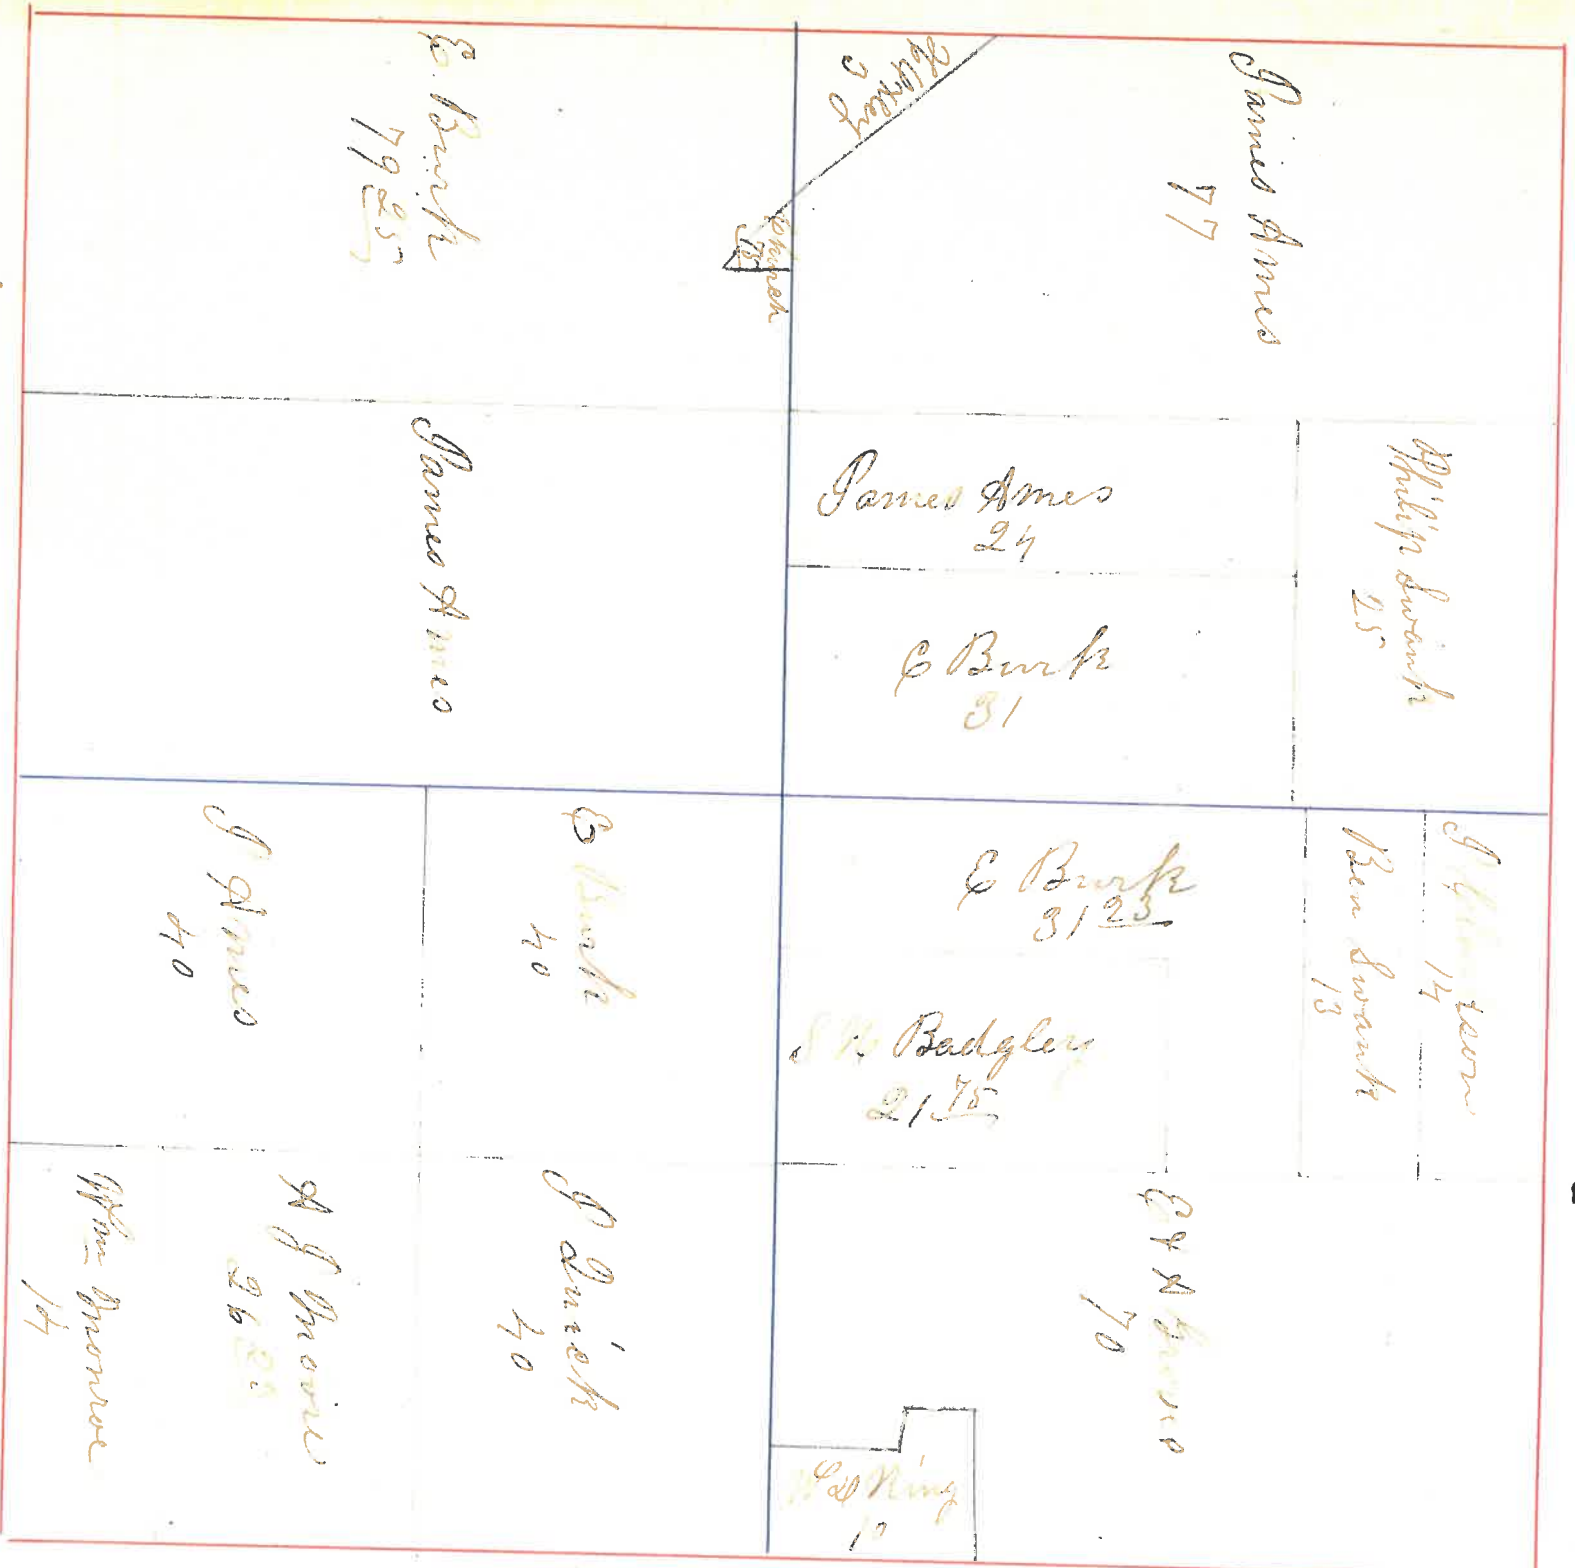 E. Burk
79 25
Huxley
3
James Ames
77
Church
75
James Ames
James Ames
24
E Burk
31
Philip Swank
25
J Ames
40
E Burk
40
E Burk
31 23
Badgley
21 75
Ben Swank
13
J
14
Wm Monroe
14
A J Moore
26
J Quick
40
E & A
70
King
10